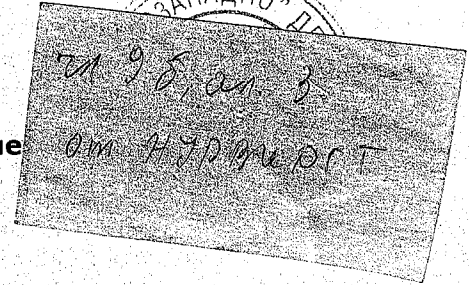 ЗАПАДНО"
чл 9 б, ал. 3
от НУРВИДГТ
не